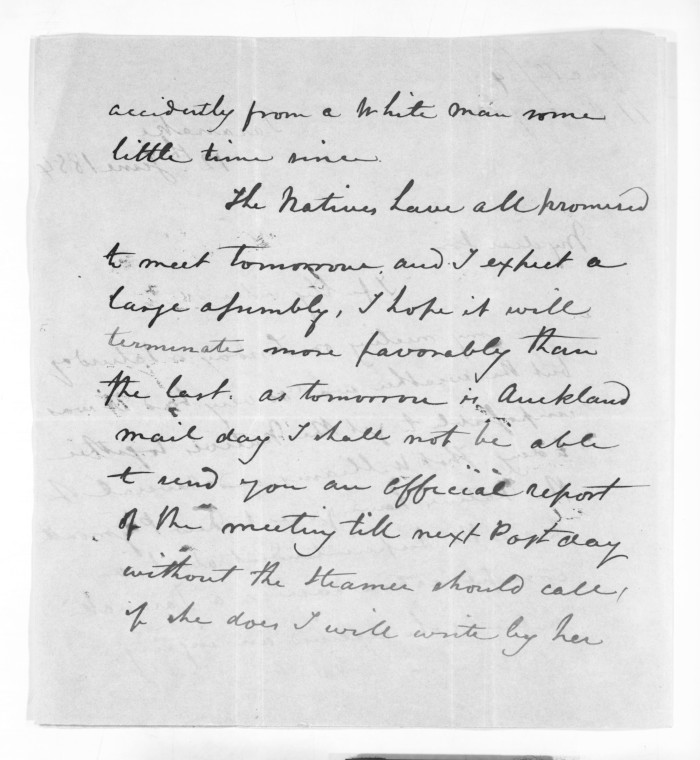 accidently from a White man some
little time since
The Natives have all promised
to meet tomorrow, and I expect a
large assembly, I hope it will
terminate more favorably than
the last. as tomorrow is Auckland
mail day I shall not be able
to send you an Official report
of the meeting till next Post day
without the Steamer should call,
if she does I will write by her